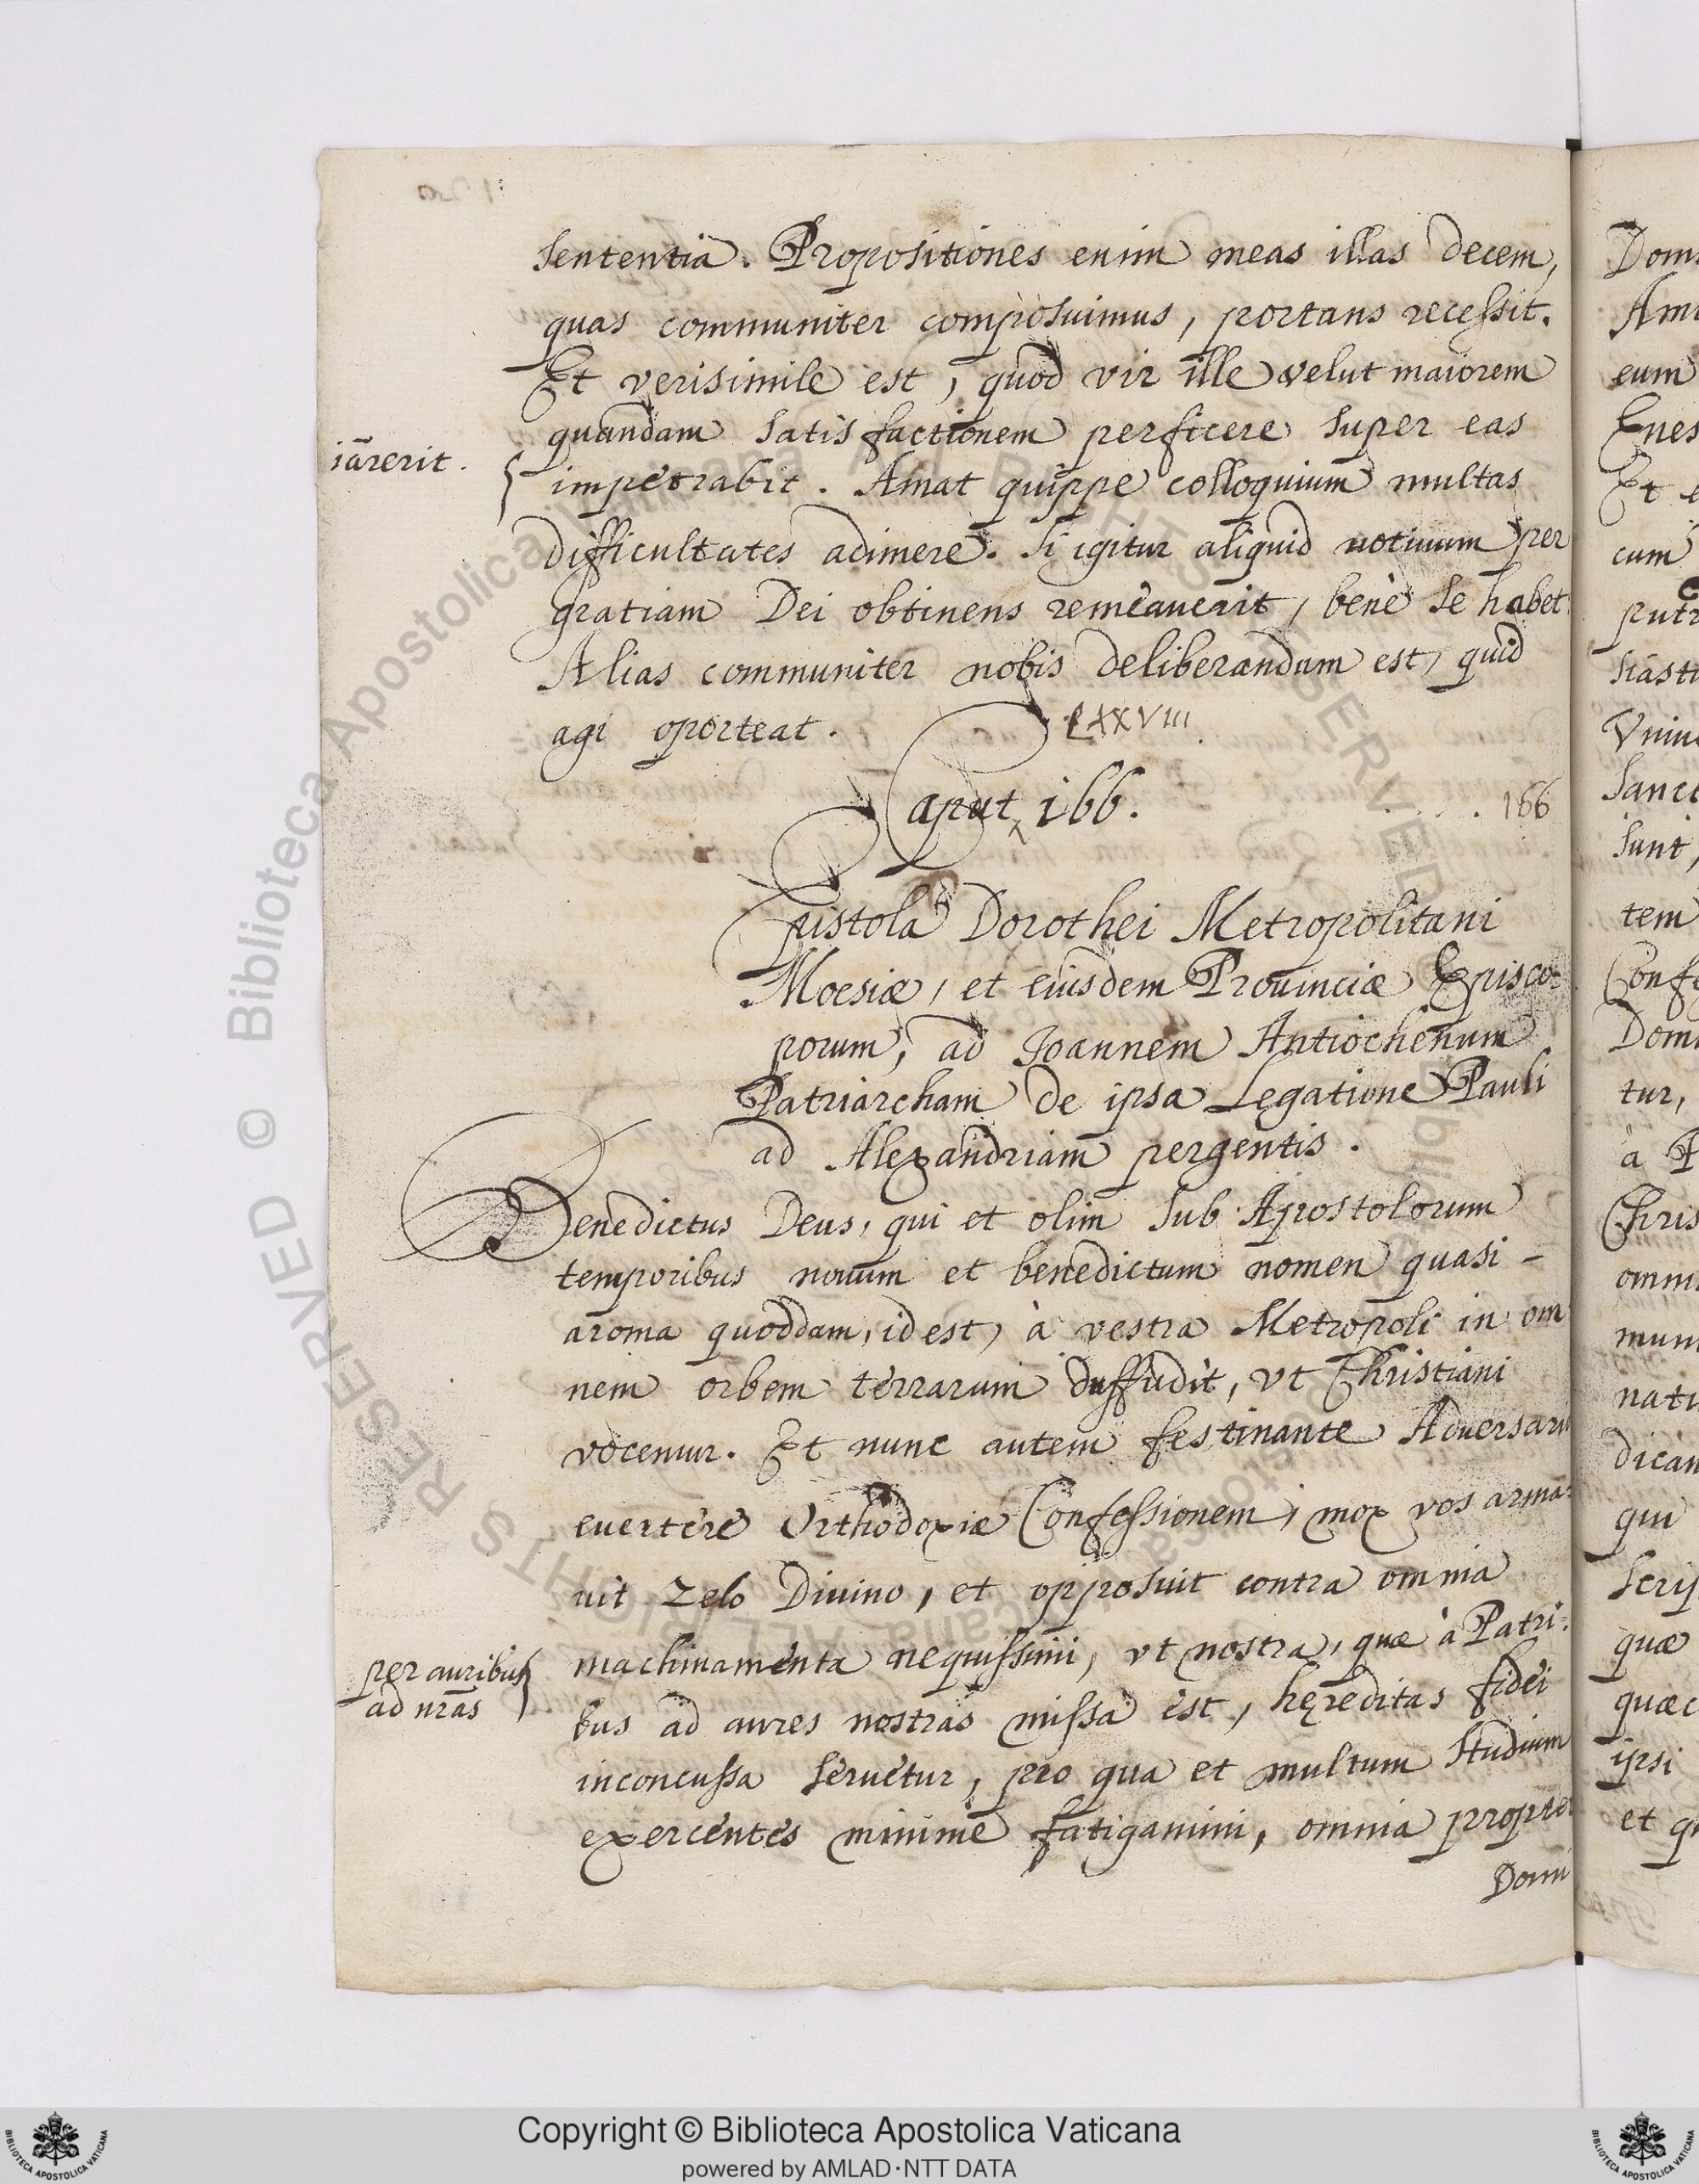 sententia. Propositiones enim meas illas decem,
quas communiter composuimus, portans recessit.
Et verisimile est, quod vir ille velut maiorem
quandam satisfactionem perficere super eas
iārerit.
impetrabit. Amat quippe colloquium multas
difficultates adimere. Si igitur aliquid votiuum per
gratiam Dei obtinens remeauerit, benè se habet
Alias communiter nobis deliberandum est, quid
agi oporteat.
LXXVIII
Caput 166.
166
Epistola Dorothei Metropolitani
Moesiæ, et eiusdem Prouinciæ Episco-
porum, ad Joannem Antiochenum
Patriarcham de ipsa Legatione Pauli
ad Alexandriam pergentis.
Benedictus Deus, qui et olim sub Apostolorum
temporibus nouum et benedictum nomen quasi-
aroma quoddam, id est, à vestra Metropoli in om
nem orbem terrarum diffudit, vt Christiani
vocemur. Et nunc autem festinante Aduersari
euertere Orthodoxiæ Confessionem, mox vos arma-
uit zelo Diuino, et opposuit contra omnia
machinamenta nequissimi, vt nostra, quæ à Patri-
per auribus
ad nr̄as
bus ad aures nostras missa est, hęreditas fidei
inconcussa seruetur, pro qua et multum studium
exercentes minimè fatigamini, omnia propter
Domi
Dom
Am
eum
Enes
Et e
cum
putr
siast
Vniu
Sanc
sunt,
tem
Conf
Dom
tur,
à P
Chris
omni
mun
nati
dican
qui
scrip
quæ
quæc
ipsi
et q
Biblioteca Apostolica Vaticana ALL RIGHTS RESERVED ©
Copyright © Biblioteca Apostolica Vaticana
powered by AMLAD·NTT DATA
BIBLIOTECA APOSTOLICA VATICANA
BIBLIOTECA APOSTOLICA VATICANA